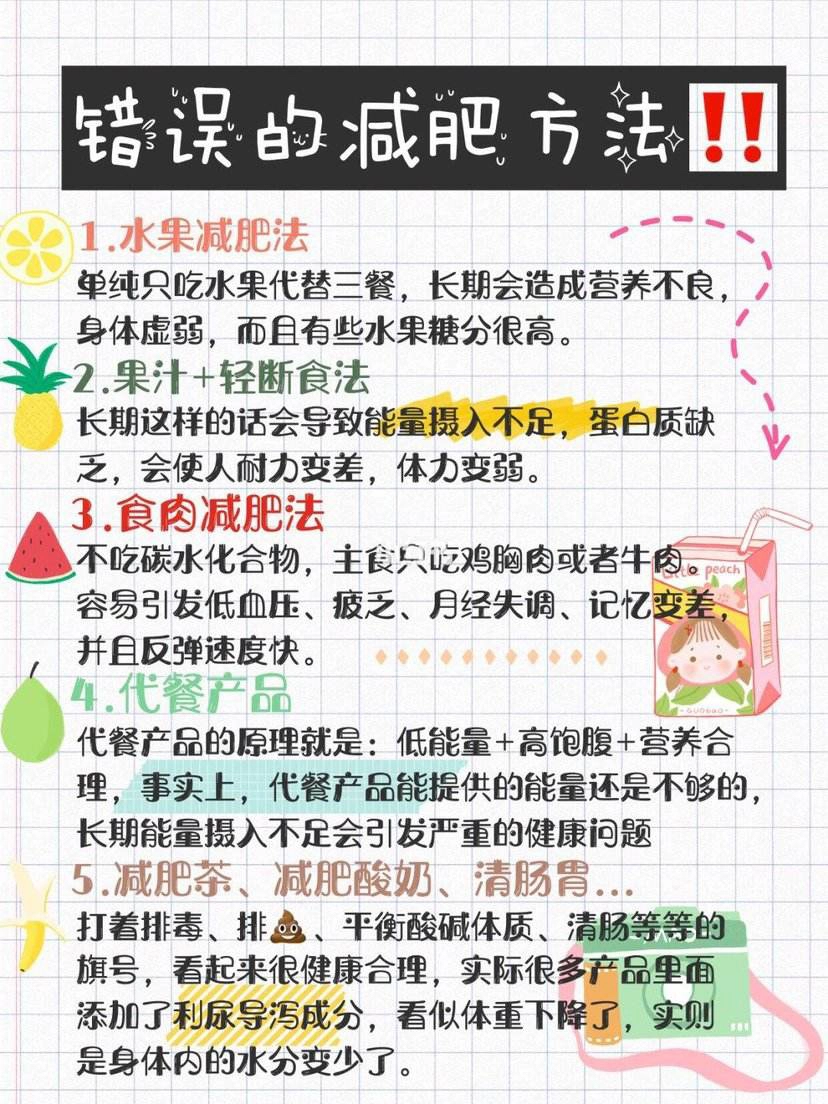 错误的减肥方法‼️
1.水果减肥法
单纯只吃水果代替三餐，长期会造成营养不良，
身体虚弱，而且有些水果糖分很高。
2.果汁+轻断食法
长期这样的话会导致能量摄入不足，蛋白质缺
乏，会使人耐力变差，体力变弱。
3.食肉减肥法
不吃碳水化合物，主食只吃鸡胸肉或者牛肉。
Little peach
容易引发低血压、疲乏、月经失调、记忆变差，
并且反弹速度快。
-GUOBAO-
4.代餐产品
代餐产品的原理就是：低能量+高饱腹+营养合
理，事实上，代餐产品能提供的能量还是不够的，
长期能量摄入不足会引发严重的健康问题
5.减肥茶、减肥酸奶、清肠胃...
打着排毒、排💩、平衡酸碱体质、清肠等等的
旗号，看起来很健康合理，实际很多产品里面
添加了利尿导泻成分，看似体重下降了，实则
是身体内的水分变少了。